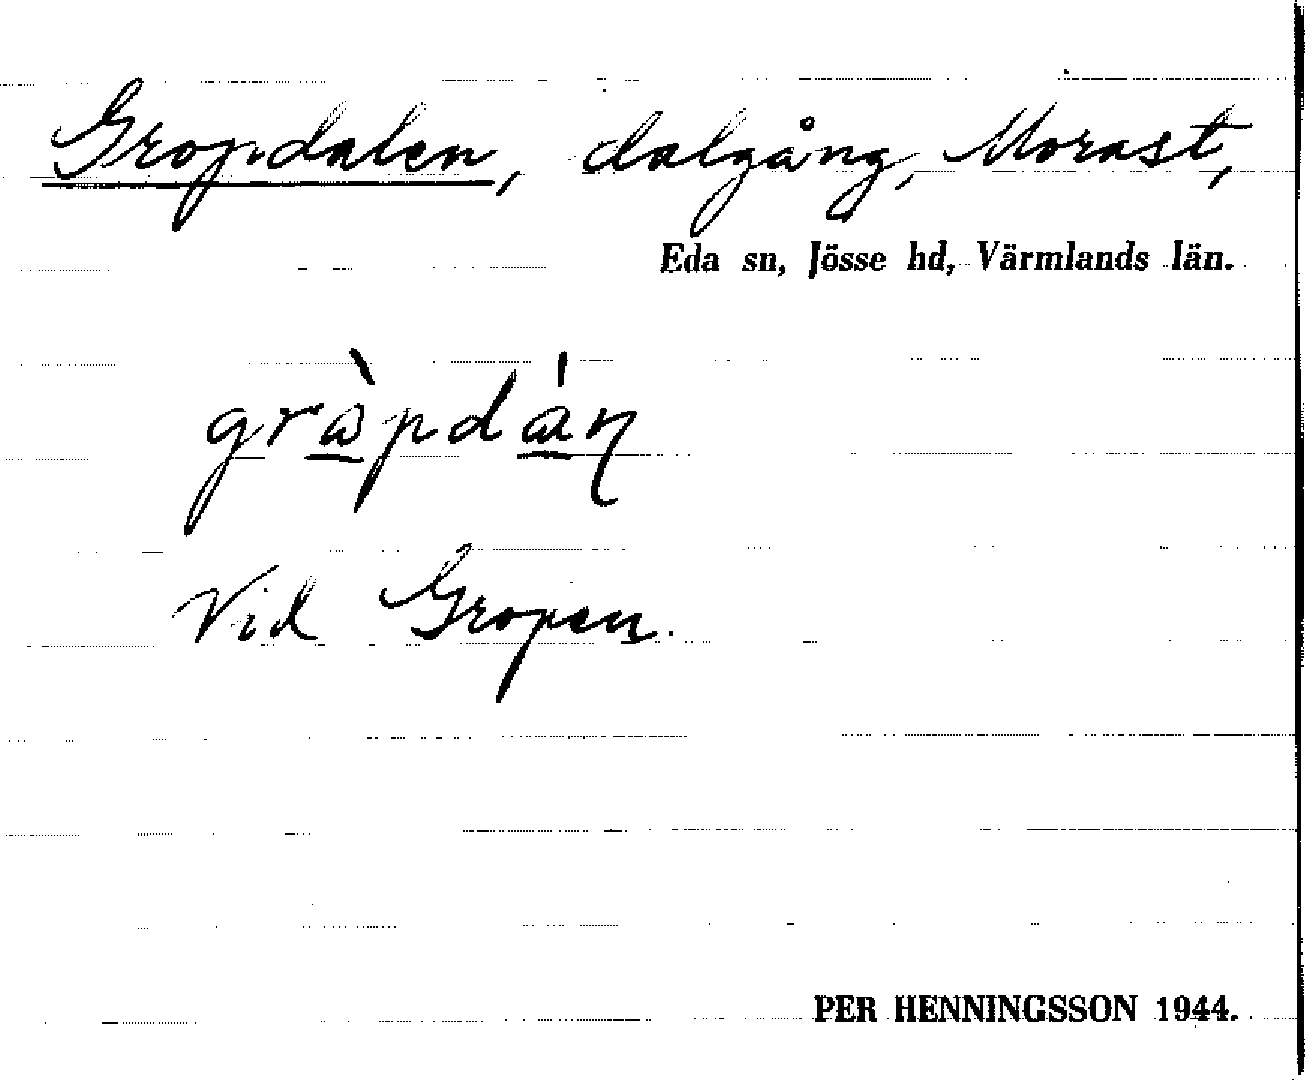 Gropdalen, dalgång, Morast,
Eda sn, Jösse hd, Värmlands län.
gràpdán
Vid Gropen.
PER HENNINGSSON 1944.